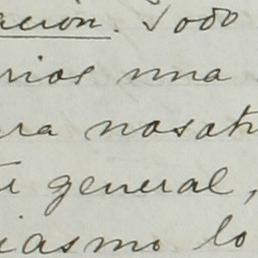 ación. Todo
rios una
ra nosotr
te general,
iasmo lo